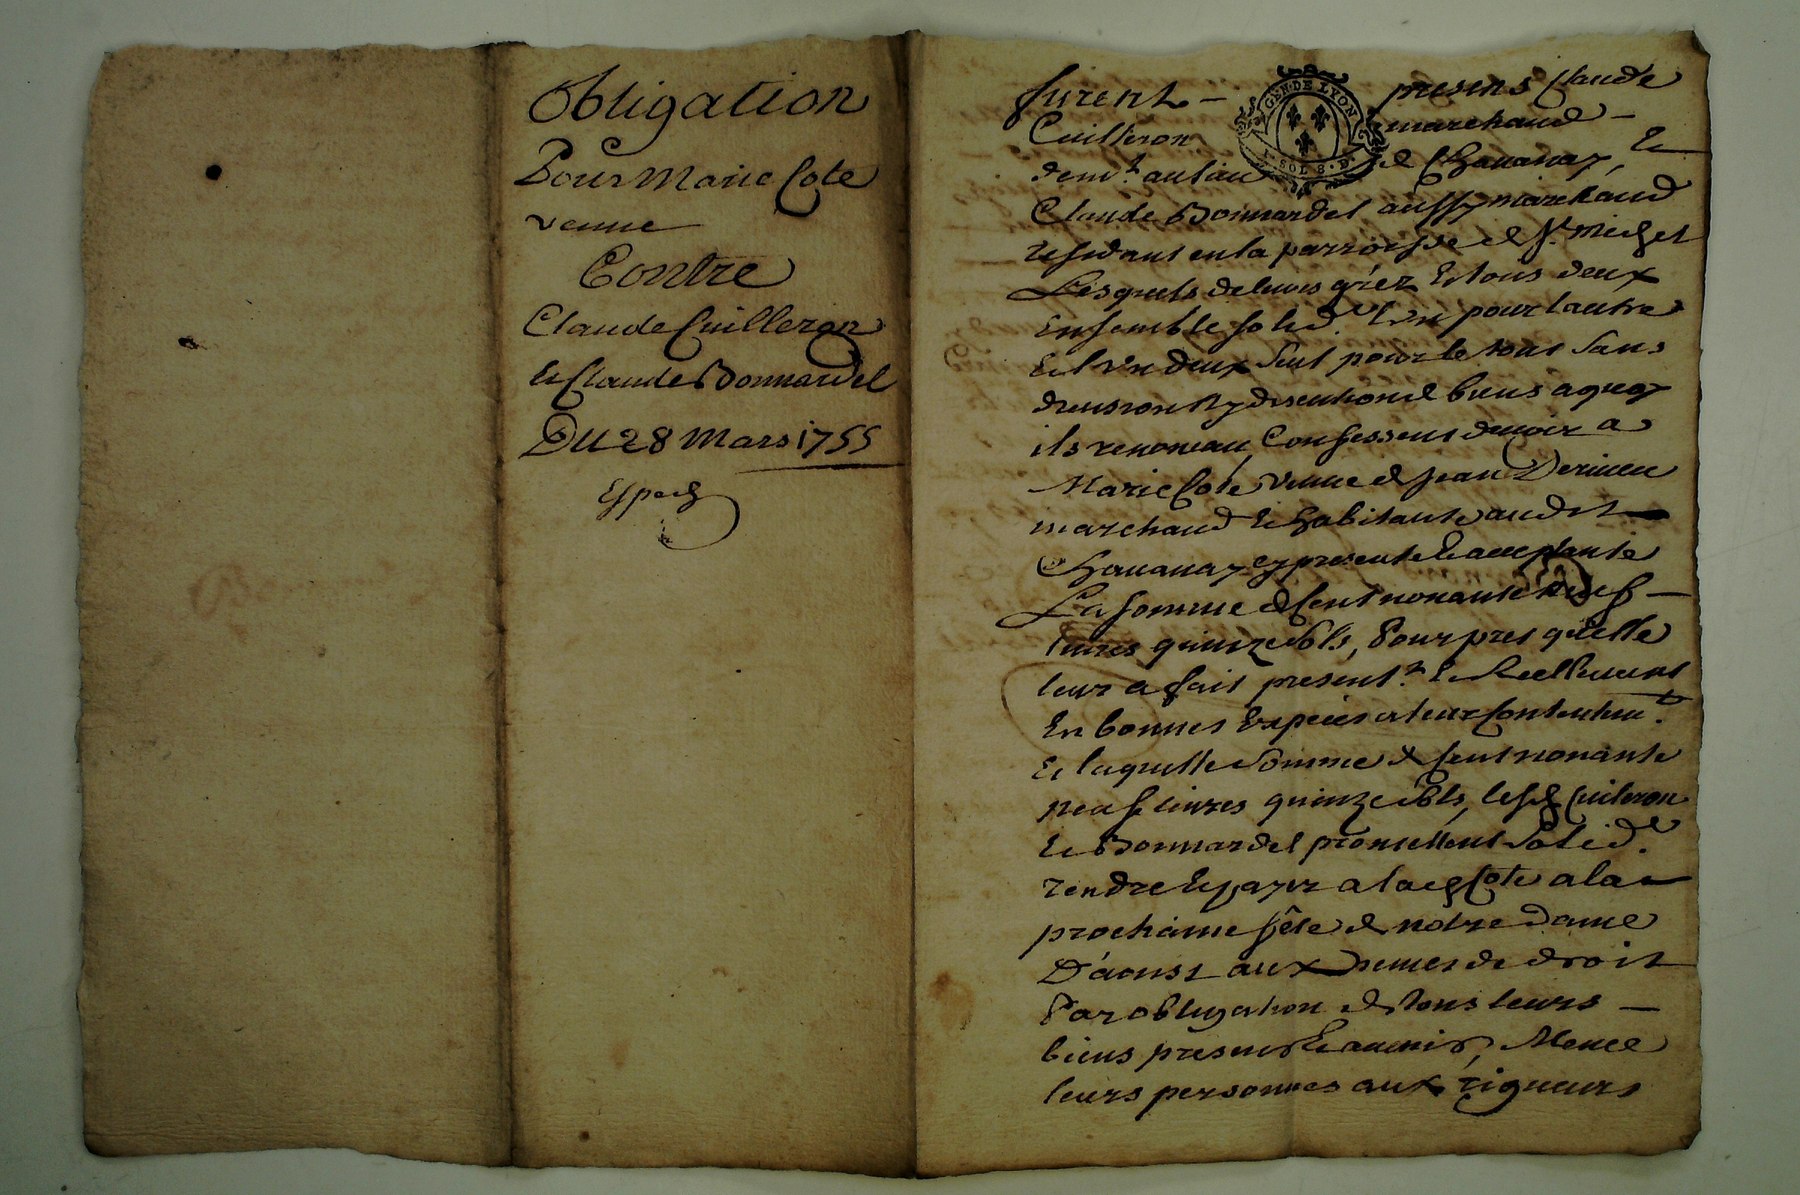 Obligation
Pour Marie Cote
veuue
Contre
Claude Cuilleron
Et Claude Bonnardel
DU 28 Mars 1755
Exped
furent – presens Claude
Cuilleron marchand –
GEN. DE LYON
SOLS. D.
dem.t au lieu de Chauanay, Et
Claude Bonnardel aussy marchand
residant en la parroisse de St. Michel
Lesquels de leurs grez Et tous deux
Ensemble solid.t L'vn pour l'autre
Et l'vn deux seul pour le tout sans
diuision ny discution de biens a quoy
ils renoncent, Confessent deuoir a
Marie Cote veuue de Jean
marchand Et habitante audit
Chauanay cy presente Et acceptante
La somme de Cent nonante neuf –
liures quinze sols, Pour pret qu'elle
leur a fait present.t Et Reellement
En bonnes Especes a leur Contentem.t
Et laquelle somme de Cent nonante
neuf liures quinze sols, lesd Cuileron
Et Bonnardel promettent solid.t
rendre Et payer a lad Cote a la
prochaine fête de notre dame
D'aoust aux de droit
Par obligation de tous leurs –
biens presens Et auenir, Meme
leurs personnes aux rigueurs